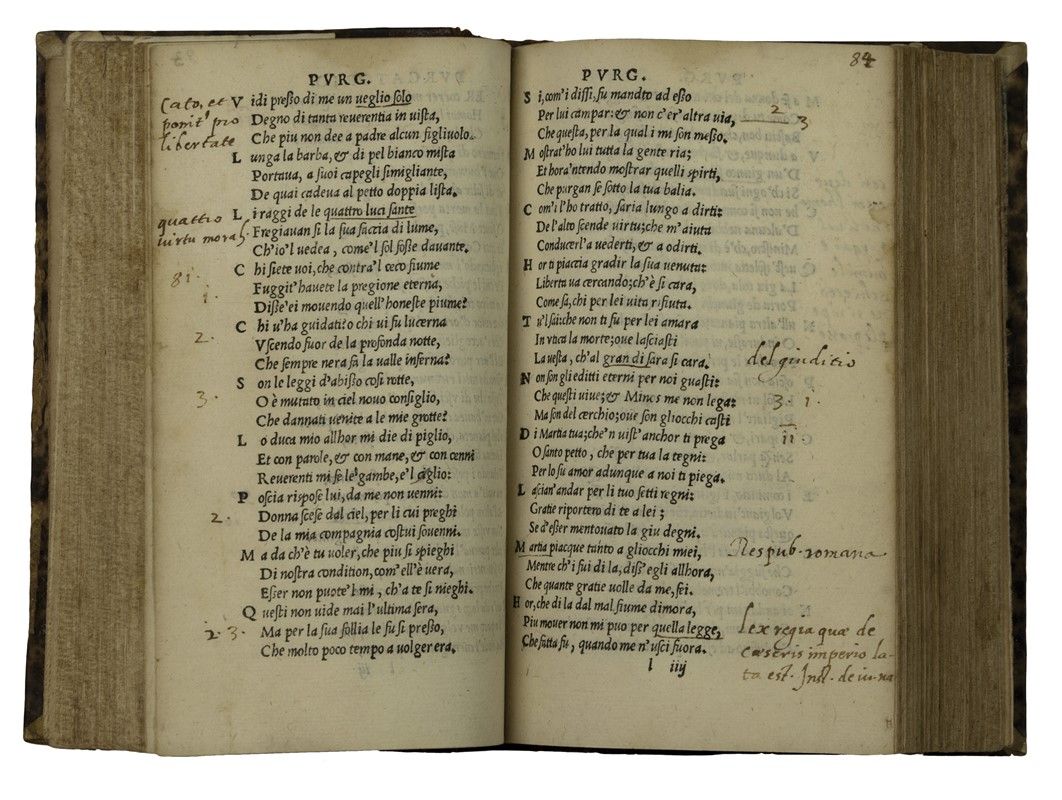 PVRG.
Cato, et
ponit' pro
libertate
V idi presso di me un ueglio solo
Degno di tanta reuerentia in uista,
Che piu non dee a padre alcun figliuolo.
L unga la barba, & di pel bianco mista
Portaua, a suoi capegli simigliante,
De quai cadeua al petto doppia lista.
quattro
uirtu moral.
L i raggi de le quattro luci sante
Fregiauan si la sua faccia di lume,
Ch'io'l uedea, come'l sol fosse dauante.
81.
1.
C hi siete uoi, che contra'l ceco fiume
Fuggit' hauete la pregione eterna,
Diss'ei mouendo quell'honeste piume?
2.
C hi u'ha guidati? o chi ui fu lucerna
Vscendo fuor de la profonda notte,
Che sempre nera fa la ualle inferna?
3.
S on le leggi d'abisso cosi rotte,
O è mutato in ciel nouo consiglio,
Che dannati uenite a le mie grotte?
L o duca mio allhor mi die di piglio,
Et con parole, & con mane, & con cenni
Reuerenti mi fe le gambe, e'l ciglio:
2.
P oscia rispose lui, da me non uenni:
Donna scese dal ciel, per li cui preghi
De la mia compagnia costui souenni.
M a da ch'è tu uoler, che piu si spieghi
Di nostra condition, com'ell'è uera,
Esser non puote'l mi, ch'a te si nieghi.
2. 3.
Q uesti non uide mai l'ultima sera,
Ma per la sua follia le fu si presso,
Che molto poco tempo a uolger era.
84
PVRG.
S i, com'i dissi, fu mandto ad esso
Per lui campar: & non c'er' altra uia,
Che questa, per la qual i mi son messo.
2
3
M ostrat'ho lui tutta la gente ria;
Et hora'ntendo mostrar quelli spirti,
Che purgan se sotto la tua balia.
C om'i l'ho tratto, saria lungo a dirti:
De l'alto scende uirtu; che m'aiuta
Conducerl'a uederti, & a odirti.
H or ti piaccia gradir la sua uenuta:
Liberta ua cercando; ch'è si cara,
Come sa, chi per lei uita rifiuta.
T u'l sai: che non ti fu per lei amara
In vtica la morte; oue lasciasti
La uesta, ch'al gran di sara si cara.
del giuditio
N on son gli editti eterni per noi guasti:
Che questi uiue; & Minos me non lega:
Ma son del cerchio; oue son gliocchi casti
3. 1.
ii.
D i Martia tua; che'n uist' anchor ti prega
O santo petto, che per tua la tegni:
Per lo su amor adunque a noi ti piega.
L ascian'andar per li tuo setti regni:
Gratie riportero di te a lei;
Se d'esser mentouato la giu degni.
M artia piacque tanto a gliocchi miei,
Respub. romana
Mentre ch'i fui di la, diss' egli allhora,
Che quante gratie uolle da me, fei.
H or, che di la dal mal fiume dimora,
Piu mouer non mi puo per quella legge,
Che fatta fu, quando me n'usci fuora.
Lex regia quæ de
cæseris imperio la-
ta est. Inst. de iu. na
l iiij